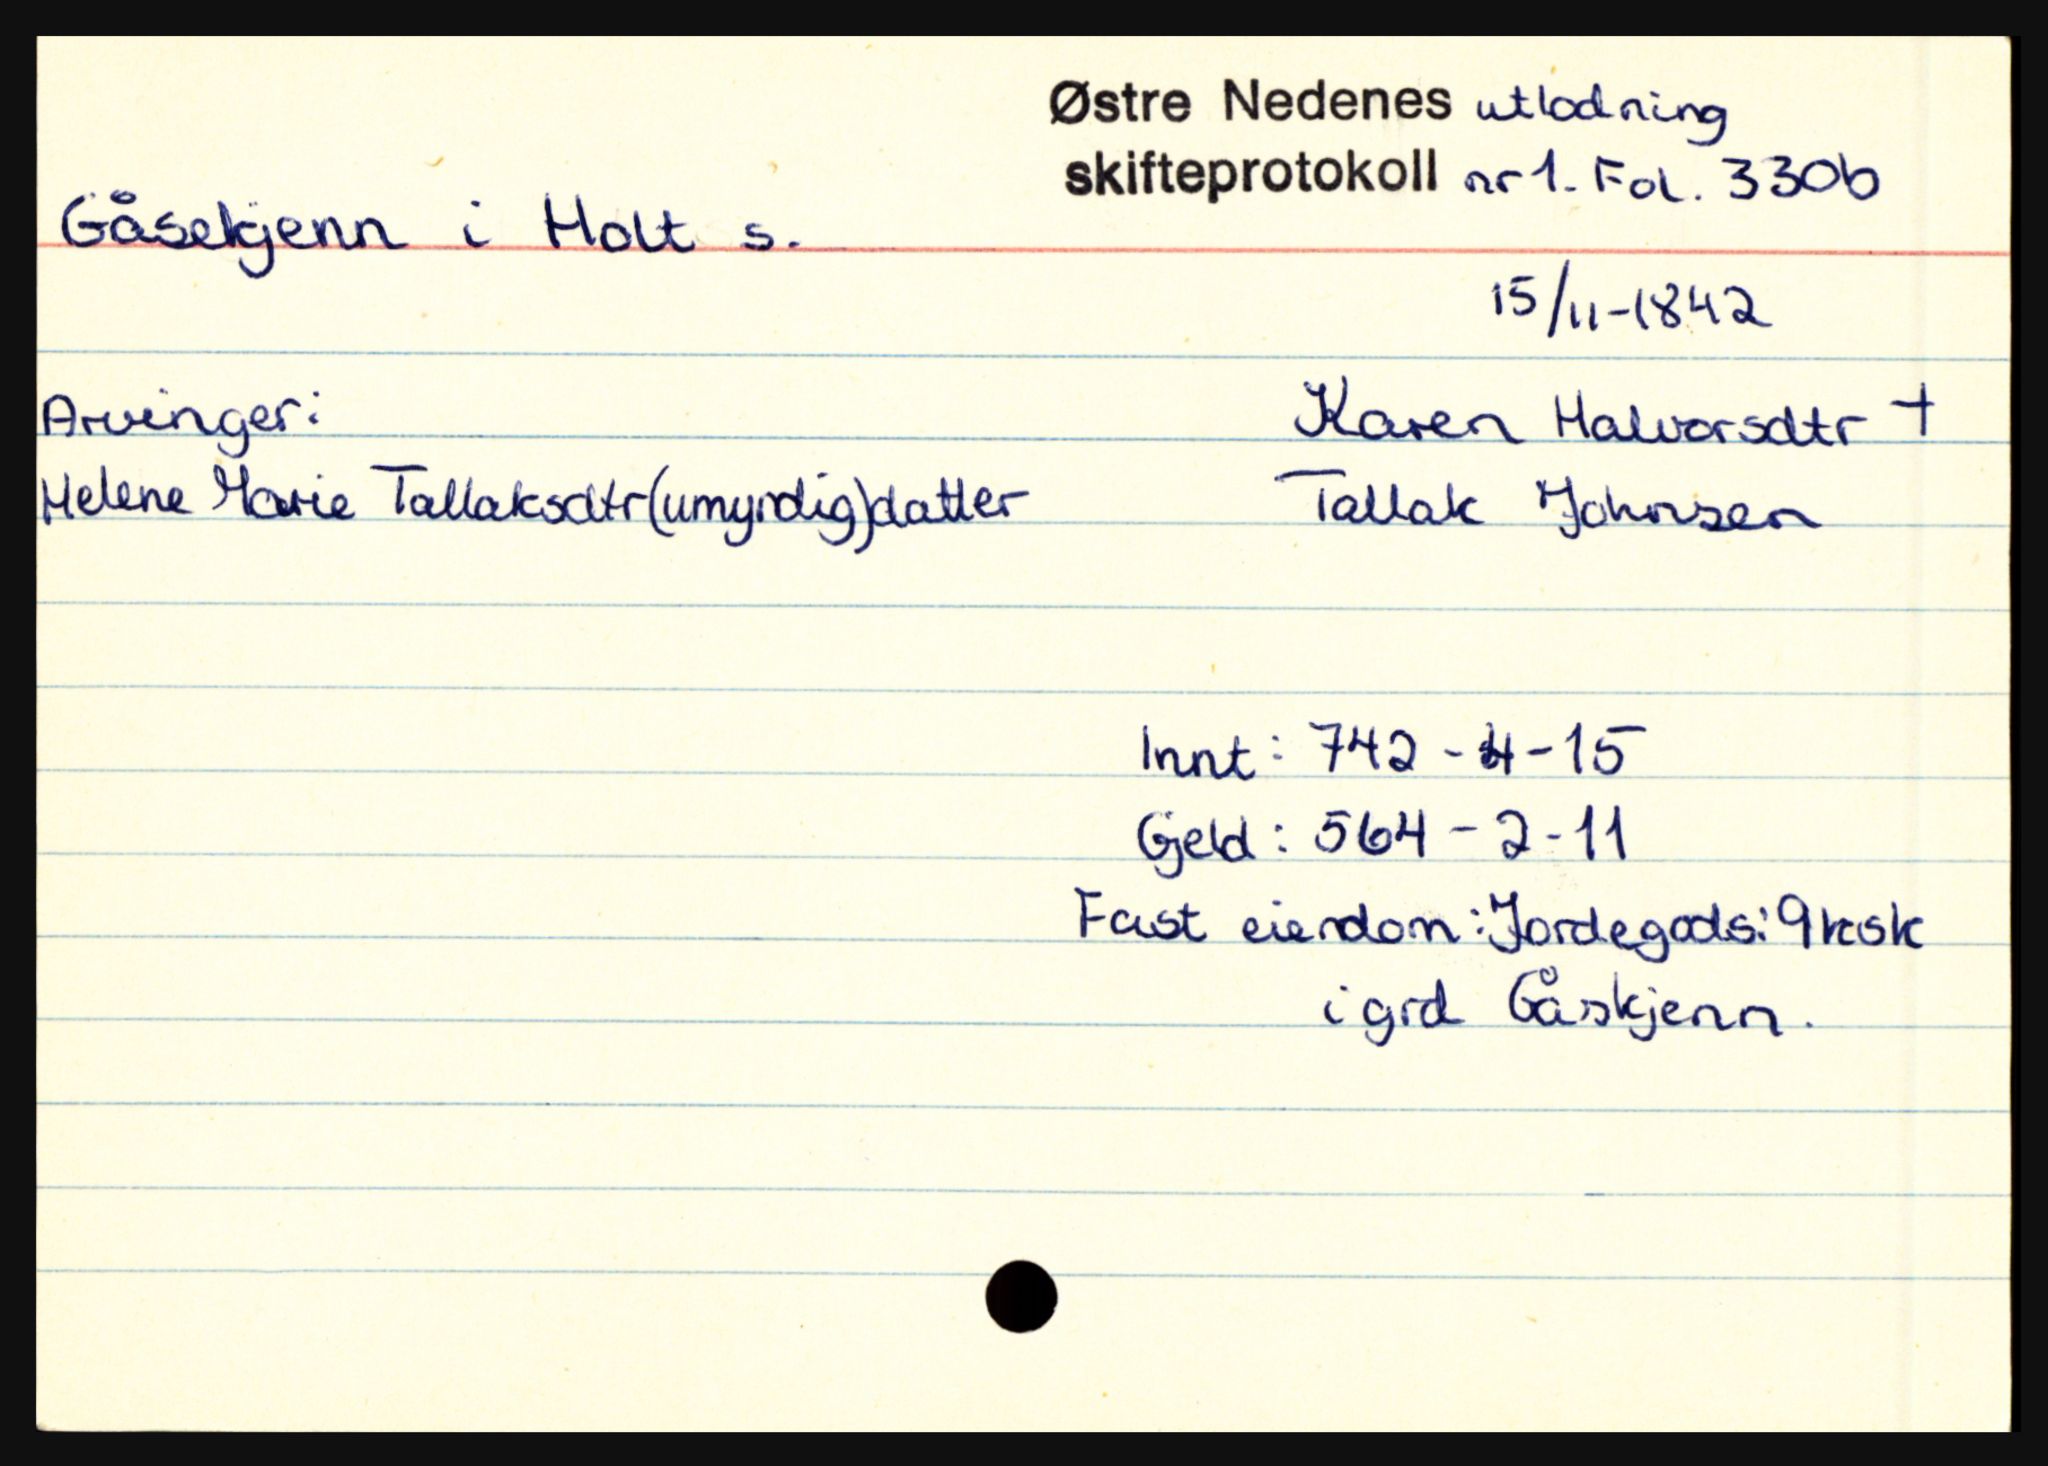 Østre Nedenes utlodning
skifteprotokoll nr 1. Fol. 330b
Gåsekjenn i Holt s.
15/11-1842
Arvinger:
Karen Halvorsdtr +
Helene Marie Tallaksdtr (umyndig) datter
Tallak Johnsen
Innt: 742-4-15
Gjeld: 564-2-11
Fast eiendom: Jordegods: 9 ksk
i grd Gåskjenn.